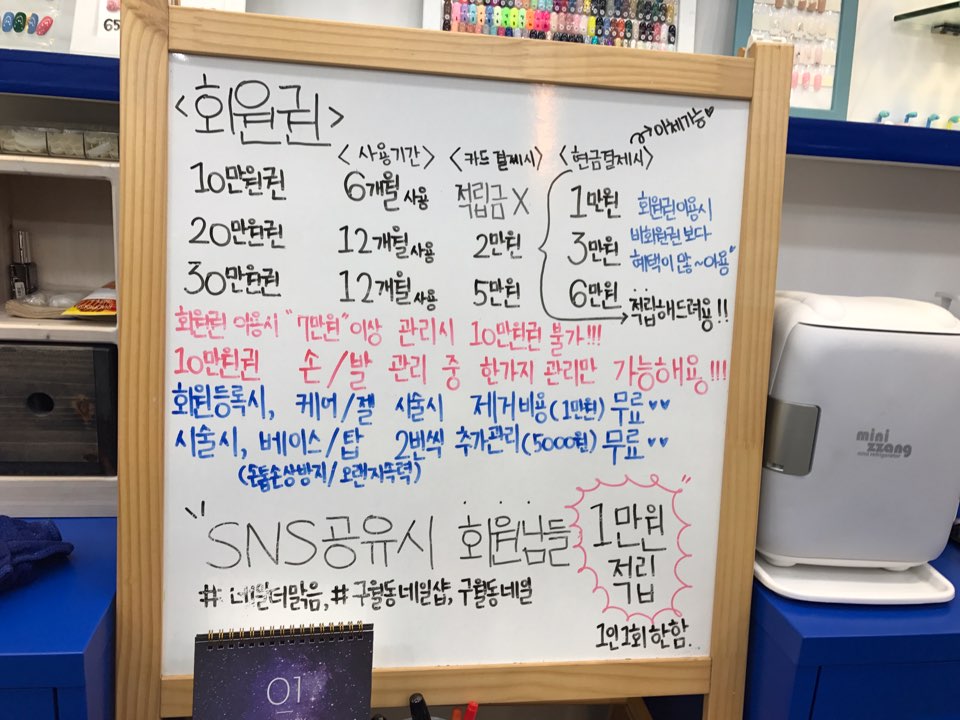 65
<회원권>
~> 이체가능♥
<사용기간> <카드결제시> <현금결제시>
10만원권 6개월 사용 적립금 X 1만원
20만원권 12개월 사용 2만원 3만원
30만원권 12개월 사용 5만원 6만원 적립해드려용!!
회원권이용시
비회원권 보다
혜택이 많~아용♥
회원권 이용시 "7만원" 이상 관리시 10만원권 불가!!!
10만원권 손/발 관리 중 한가지 관리만 가능해용!!!
회원등록시, 케어/젤 시술시 제거비용(1만원) 무료♥♥
시술시, 베이스/탑 2번씩 추가관리(5000원) 무료♥♥
(손톱손상방지/오랜지속력)
SNS공유시 회원님들
1만원
적립
#네일더맑음, #구월동네일샵, 구월동네일
1인1회 한함.
mini
zzang
01